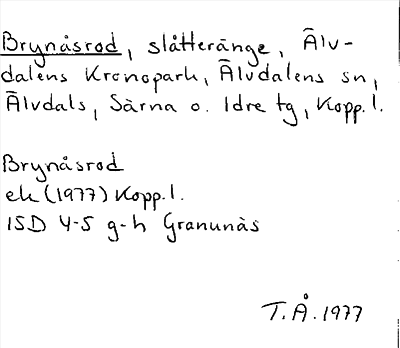 Brynåsrod, slåtteränge, Älv-
dalens Kronopark, Älvdalens sn,
Älvdals, Särna o. Idre tg, Kopp.l.
Brynåsrod
ek (1977) Kopp.l.
15D 4-5 g-h Granunäs
T.Å. 1977